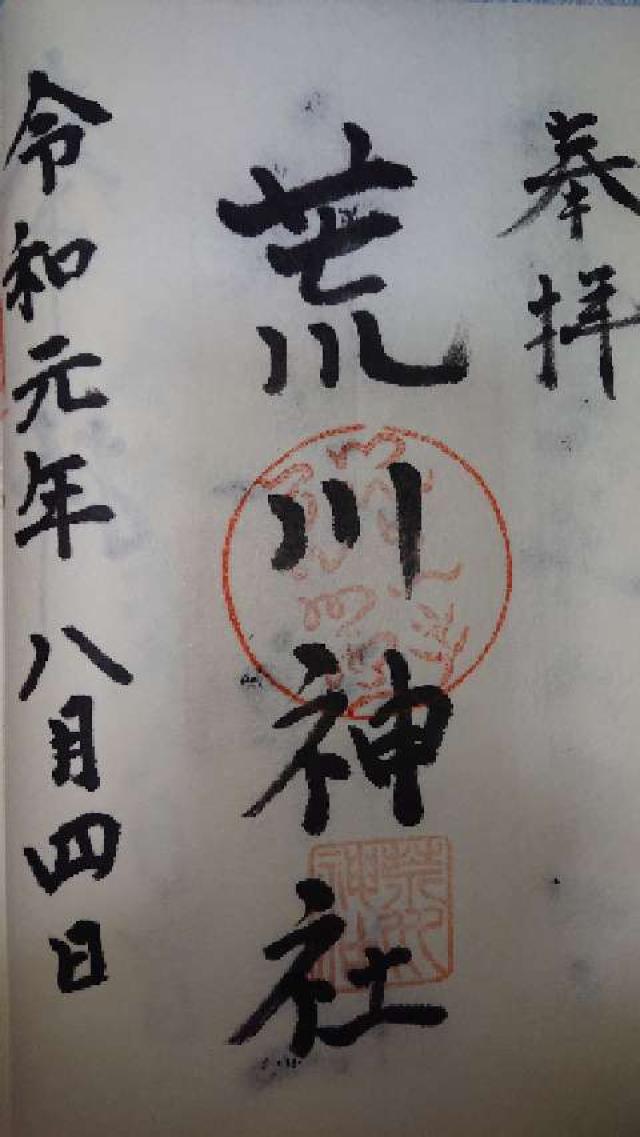 奉拝
荒川神社
令和元年八月四日